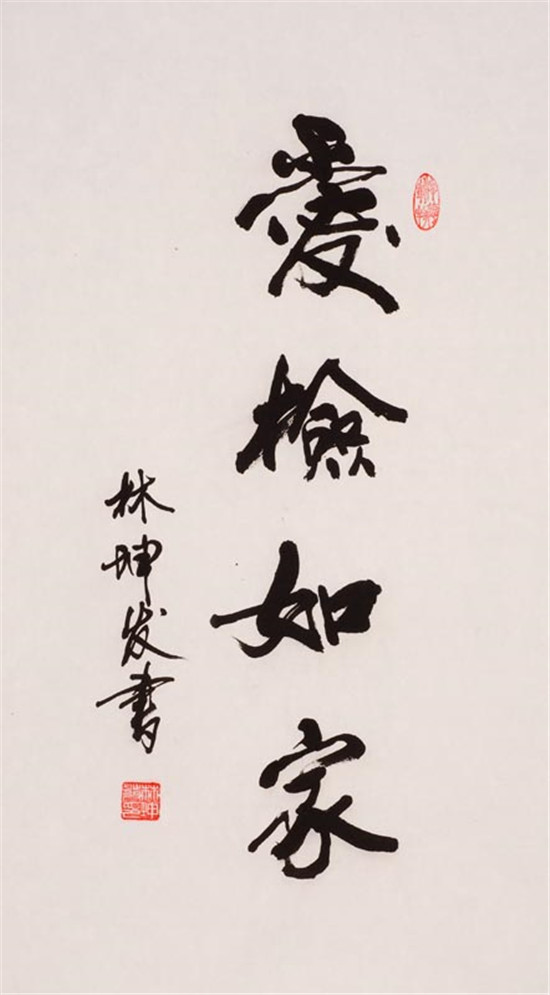 愛檢如家
林坤发書